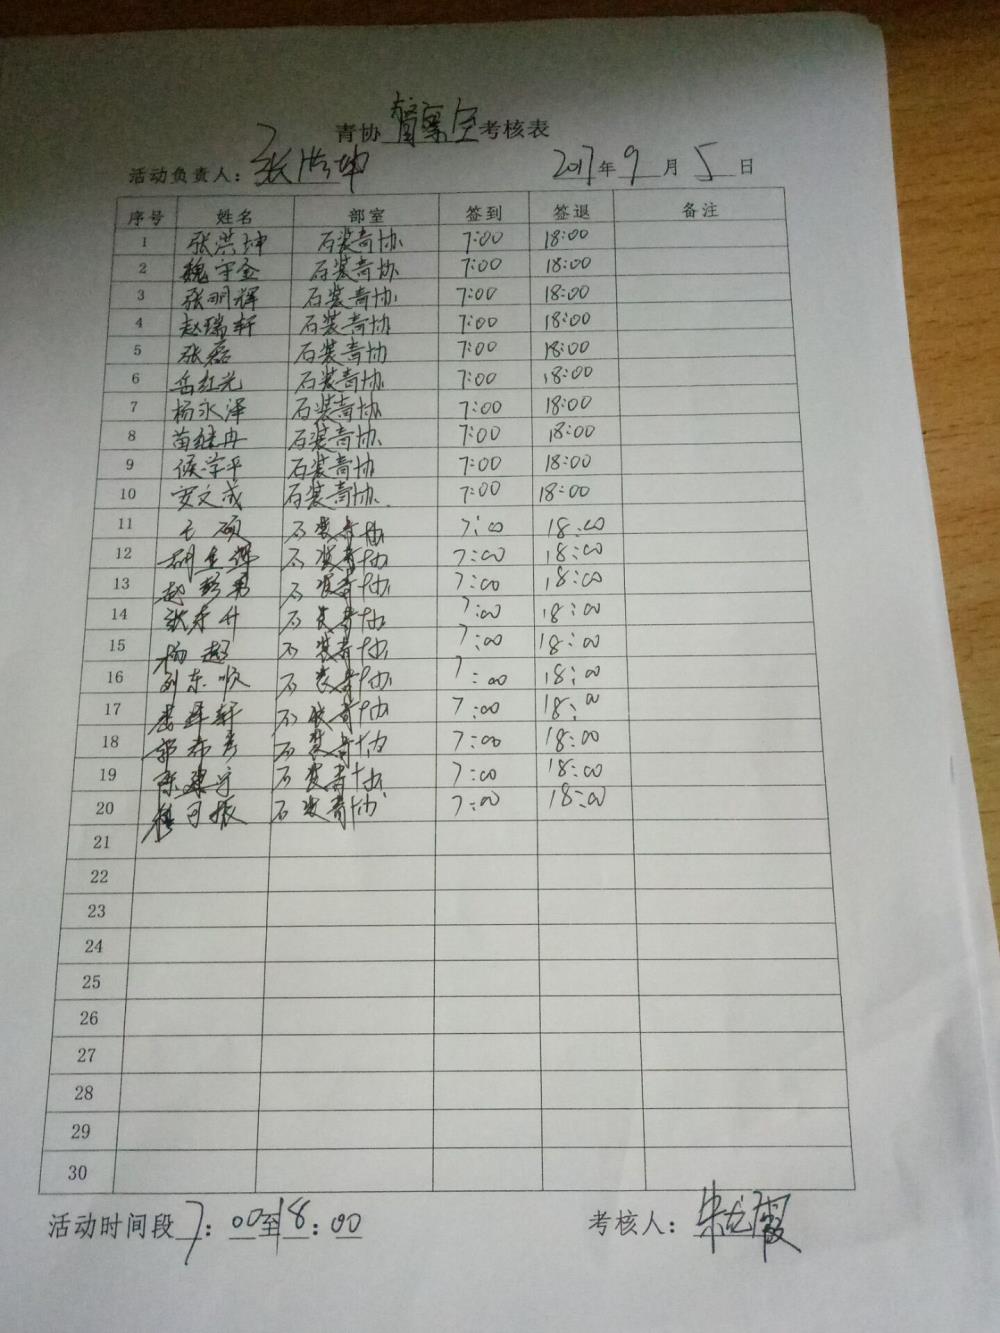 青协督察室考核表
活动负责人：张洪坤 2017年9月5日
序号 姓名 部室 签到 签退 备注
1 张洪坤 石装青协 7:00 18:00
2 魏宇金 石装青协 7:00 18:00
3 张明辉 石装青协 7:00 18:00
4 赵瑞轩 石装青协 7:00 18:00
5 张磊 石装青协 7:00 18:00
6 岳红光 石装青协 7:00 18:00
7 杨永泽 石装青协 7:00 18:00
8 苗继冉 石装青协 7:00 18:00
9 侯学平 石装青协 7:00 18:00
10 安文成 石装青协 7:00 18:00
11 王硕 石装青协 7:00 18:00
12 石装青协 7:00 18:00
13 石装青协 7:00 18:00
14 张东升 石装青协 7:00 18:00
15 杨超 石装青协 7:00 18:00
16 刘东顺 石装青协 7:00 18:00
17 石装青协 7:00 18:00
18 石装青协 7:00 18:00
19 石装青协 7:00 18:00
20 石装青协 7:00 18:00
21
22
23
24
25
26
27
28
29
30
活动时间段 7：00至18：00 考核人：朱龙霞